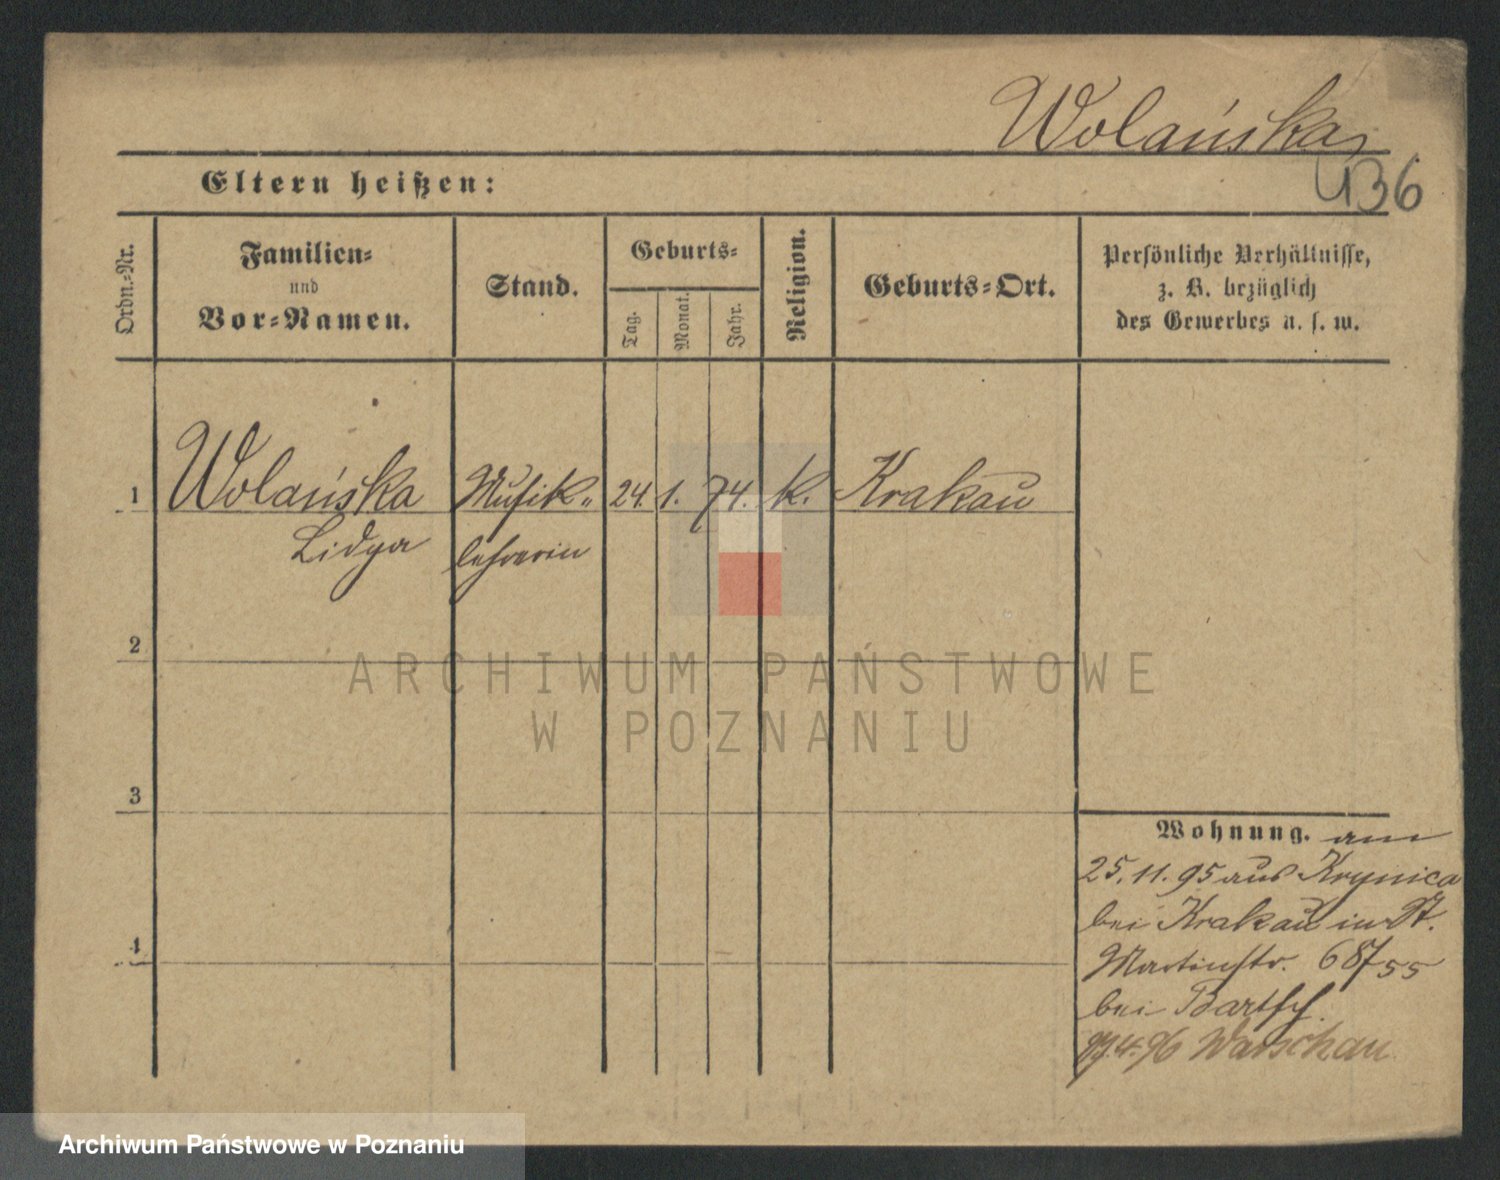 Wolańska
436
Eltern heißen:
Ordn.-Nr.
Familien-
und
Vor-Namen.
Stand.
Geburts-
Tag.
Monat.
Jahr.
Religion.
Geburts-Ort.
Persönliche Verhältnisse,
z. B. bezüglich
des Gewerbes u. s. w.
1 Wolańska Musik- 24. 1. 74. k. Krakau
Lidya lehrerin
2
3
4
Wohnung. am
25. 11. 95 aus Krynica
bei Krakau in St.
Martinstr. 68/55
bei Bartsch.
4. 96 Warschau
ARCHIWUM PAŃSTWOWE
W POZNANIU
Archiwum Państwowe w Poznaniu